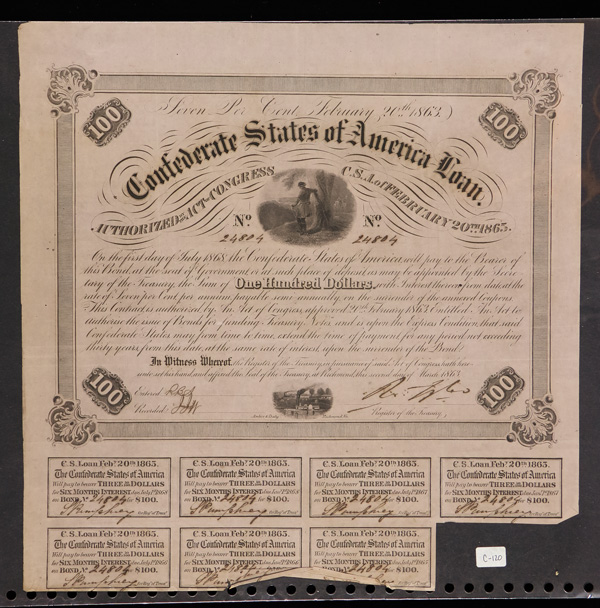 Seven Per Cent. February 20th 1863.
100 100
Confederate States of America Loan.
AUTHORIZED BY ACT OF CONGRESS C.S.A. of FEBRUARY 20TH 1863.
No. No.
24804 24804
On the first day of July 1868 the Confederate States of America will pay to the Bearer of
this Bond, at the seat of Government, or at such place of deposit as may be appointed by the Secre-
tary of the Treasury, the Sum of One Hundred Dollars, with Interest thereon from date, at the
rate of Seven per Cent per annum payable semi annually, on the surrender of the annexed Coupons
This Contract is authorized by An Act of Congress approved 20th February 1863 Entitled An Act to
authorize the issue of Bonds for funding Treasury Notes and is upon the Express Condition, that said
Confederate States may from time to time, extend the time of payment for any period not exceeding
thirty years from this date, at the same rate of interest, upon the surrender of the Bond.
In Witness Whereof, the Register of the Treasury, in pursuance of said Act of Congress hath here
unto set his hand, and affixed the Seal of the Treasury, at Richmond, this second day of March 1863
100 100
Entered
Recorded
Register of the Treasury
C.S. Loan Feby. 20th 1863. C.S. Loan Feby. 20th 1863. C.S. Loan Feby. 20th 1863. C.S. Loan Feby. 20th 1863.
The Confederate States of America The Confederate States of America The Confederate States of America The Confederate States of America
Will pay to bearer THREE DOLLARS Will pay to bearer THREE DOLLARS Will pay to bearer THREE DOLLARS Will pay to bearer THREE DOLLARS
for SIX MONTHS INTEREST for SIX MONTHS INTEREST for SIX MONTHS INTEREST for SIX MONTHS INTEREST
on BOND, No. 24804 for $100. on BOND, No. 24804 for $100. on BOND, No. 24804 for $100. on BOND, No. 24804 for $100.
C.S. Loan Feby. 20th 1863. C.S. Loan Feby. 20th 1863. C.S. Loan Feby. 20th 1863.
The Confederate States of America The Confederate States of America The Confederate States of America
Will pay to bearer THREE DOLLARS Will pay to bearer THREE DOLLARS Will pay to bearer THREE DOLLARS
for SIX MONTHS INTEREST for SIX MONTHS INTEREST for SIX MONTHS INTEREST
on BOND, No. 24804 for $100. on BOND, No. 24804 for $100. $100.
C-120